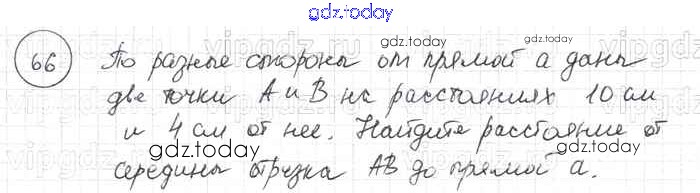 gdz.today
66 По разные стороны от прямой а даны
gdz.today
две точки А и В на расстояниях 10 см
и 4 см от нее. Найдите расстояние от
gdz.today
середины отрузка АВ до прямой а.